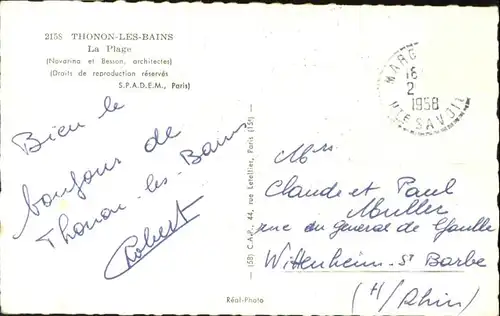 2158 THONON-LES-BAINS
La Plage
(Novarina et Besson, architectes)
(Droits de reproduction réservés
S.P.A.D.E.M., Paris)
Bien le
bonjour de
Thonon-les-Bains
Robert
(58) C.A.P. 44, rue Letellier, Paris (15e)
Réal-Photo
MARG
18
2
1958
HTE SAVOIE
Mrs
Claude et Paul
Muller
rue du Général de Gaulle
Wittenheim-St Barbe
(H/Rhin)